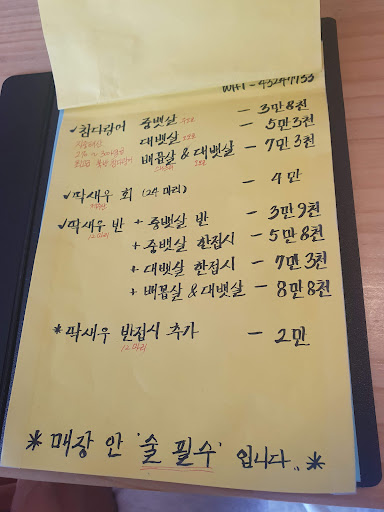 WIFI - 43247733
✓참다랑어 중뱃살 - 3만8천
대뱃살 - 5만3천
배꼽살 & 대뱃살 - 7만3천
딱새우 회 (24마리) - 4만
✓딱새우 반 + 중뱃살 반 - 3만9천
12마리
+ 중뱃살 한접시 - 5만8천
+ 대뱃살 한접시 - 7만3천
+ 배꼽살 & 대뱃살 - 8만8천
* 딱새우 반접시 추가 - 2만
12마리
* 매장 안 '술 필수' 입니다.. *